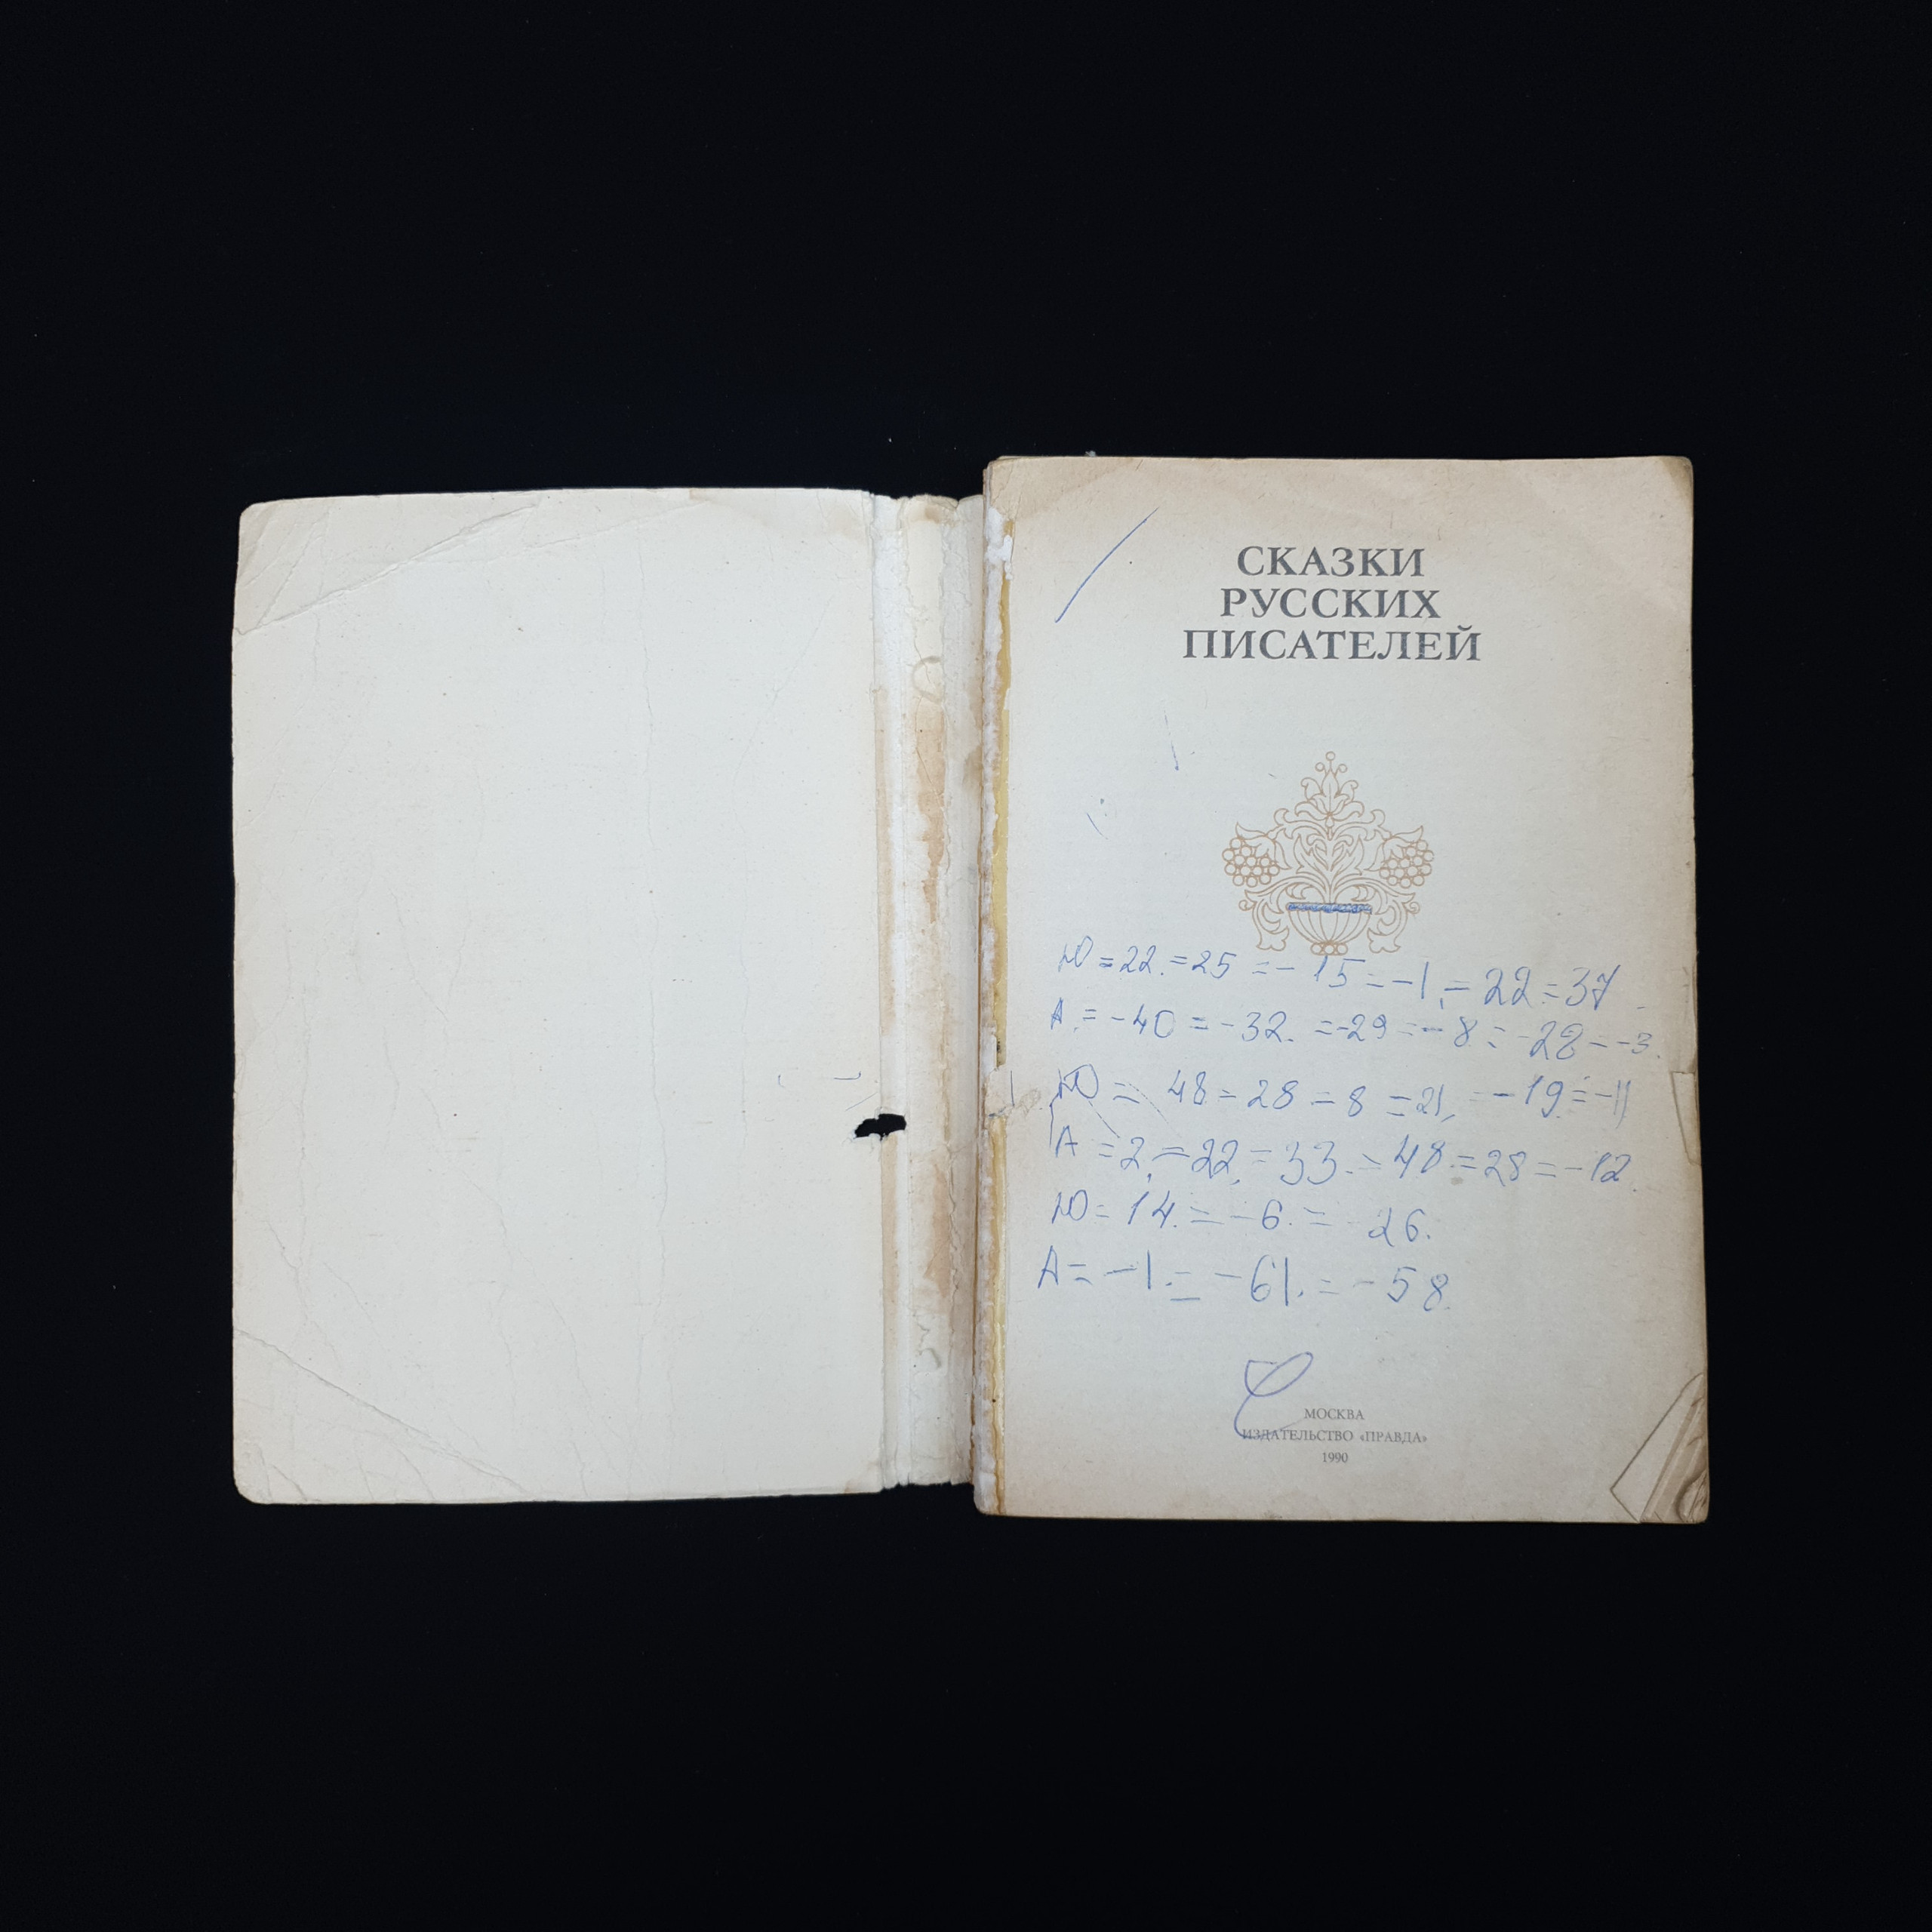 СКАЗКИ
РУССКИХ
ПИСАТЕЛЕЙ
Ю = 22. = 25 = - 15 = - 1, = 22 = 37
А. = - 40 = - 32. = -29 = - 8 = - 28 - -3.
Ю = 48 = 28 = 8 = 21, = - 19 = - 11
А = 2, = 22, = 33. = 48. = 28 = - 12.
Ю = 14. = - 6. = 26.
А = - 1. = - 61. = - 58.
МОСКВА
ИЗДАТЕЛЬСТВО «ПРАВДА»
1990